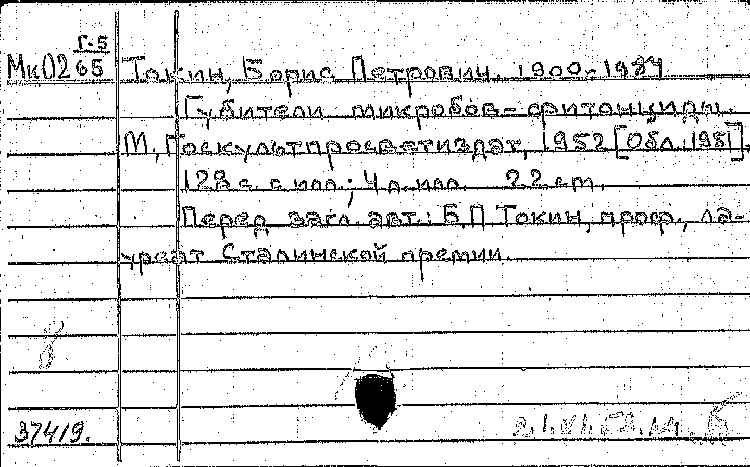 Г-5
МкО2 65 Токин, Борис Петрович. 1900-1984
Губители микробов-фитонциды.
М., Госкультпросветиздат, 1952 [Обл.:1951].
128 с. с илл.; 4 л. илл. 22 cm.
Перед загл. авт.: Б.П Токин, проф., ла-
уреат Сталинской премии.
37419.